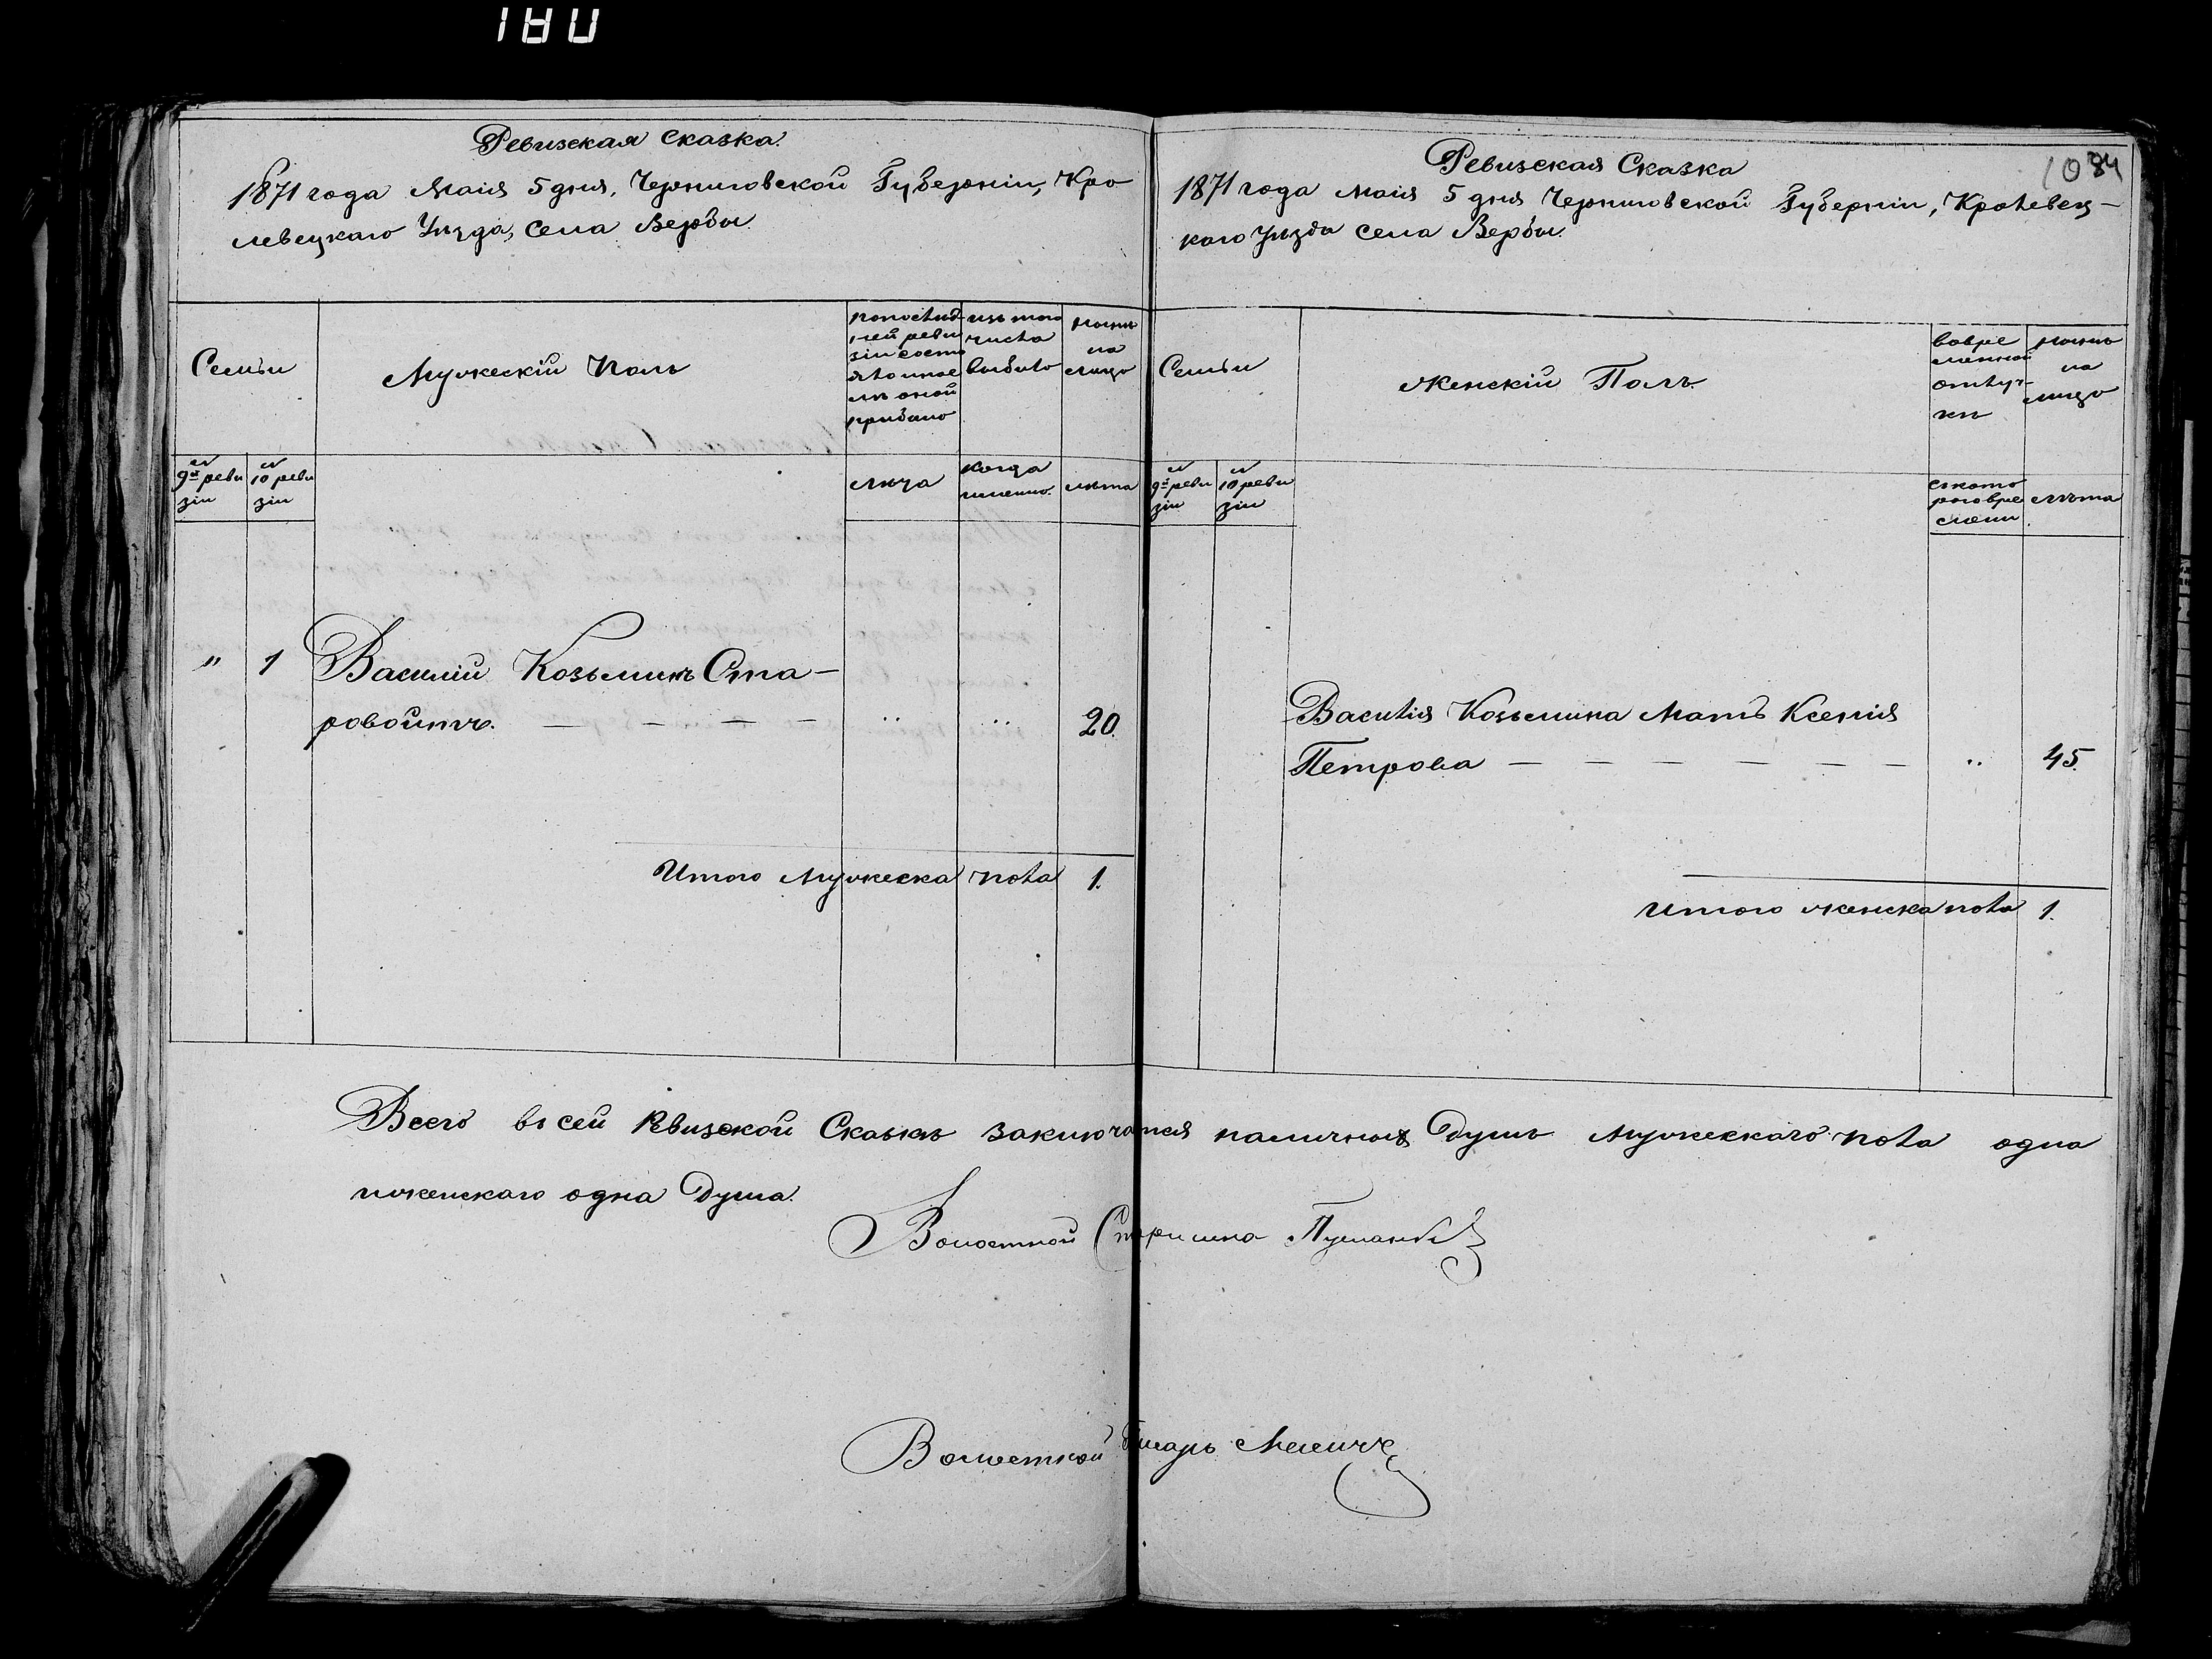 180
Ревизская сказка.
1871 года Маия 5 дня, Черниговской Губерніи, Кро
левецкаго Уѣзда, села Вербы.
Семьи
Мужескій Полъ
По послѣд
ней реви
зіи состо
яло и после
оной
прибыло
изъ того
числа
выбыло
Нынѣ
на
лицо
№
9й реви
зіи
№
10 реви
зіи
лѣта
когда
именно.
лѣта
" 1 Василій Козьминъ Ста–
ровойтъ. — — — — " " 20.
Итого мужеска пола 1.
Ревизская Сказка
1034
1871 года маия 5 дня Черниговской Губерніи, Кролевец–
каго Уѣзда села Вербы.
Семьи
Женскій Полъ.
во вре
менной
отлуч–
кѣ
Нынѣ
на
лицо
№
9й реви
зіи
№
10 реви
зіи
съ кото
раго вре
мени
лѣта
Василія Козьмина мать Ксенія
Петрова — — — — — — " 45.
Итого женска пола 1.
Всего въ сей Ревизской Сказкѣ заключается наличныхъ Душъ мужескаго пола одна
и женскаго одна Душа.
Волостной Старшина
Волостной Писарь